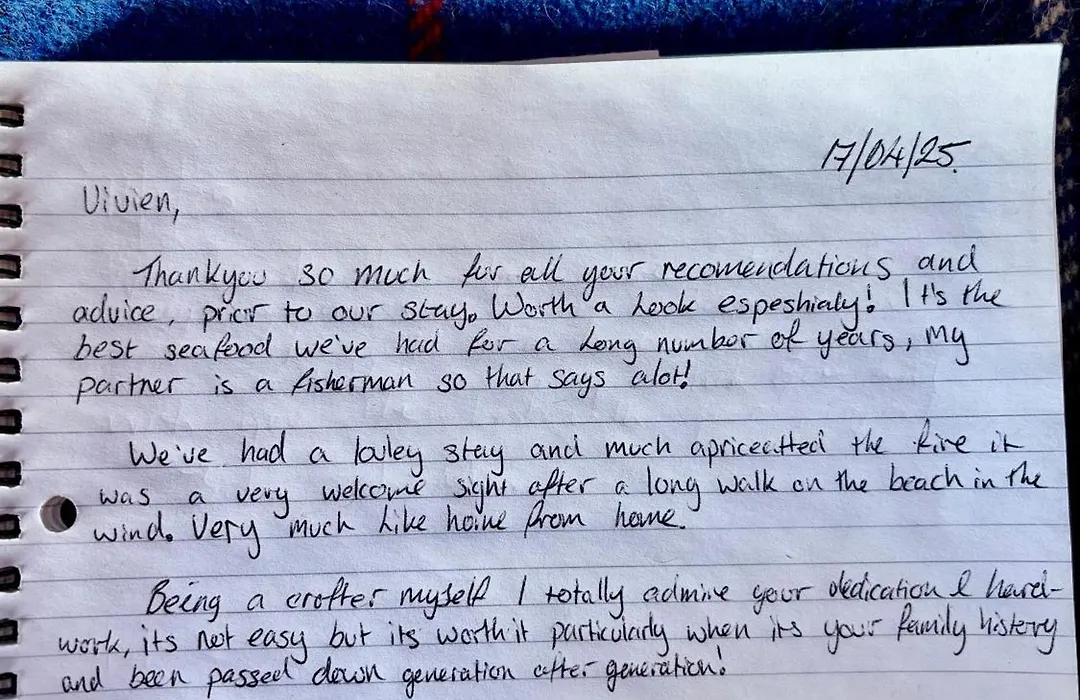 17/04/25.
Vivien,
Thankyou so much for all your recomendations and
advice, prior to our stay. Worth a Look espeshialy! It's the
best seafood we've had for a long number of years, my
partner is a fisherman so that says alot!
We've had a lovley stay and much apriceatted the fire it
was a very welcome sight after a long walk on the beach in the
wind. Very much like home from home.
Being a crofter myself I totally admire your dedication & hard-
work, its not easy but its worth it particularly when its your family history
and been passed down generation after generation!